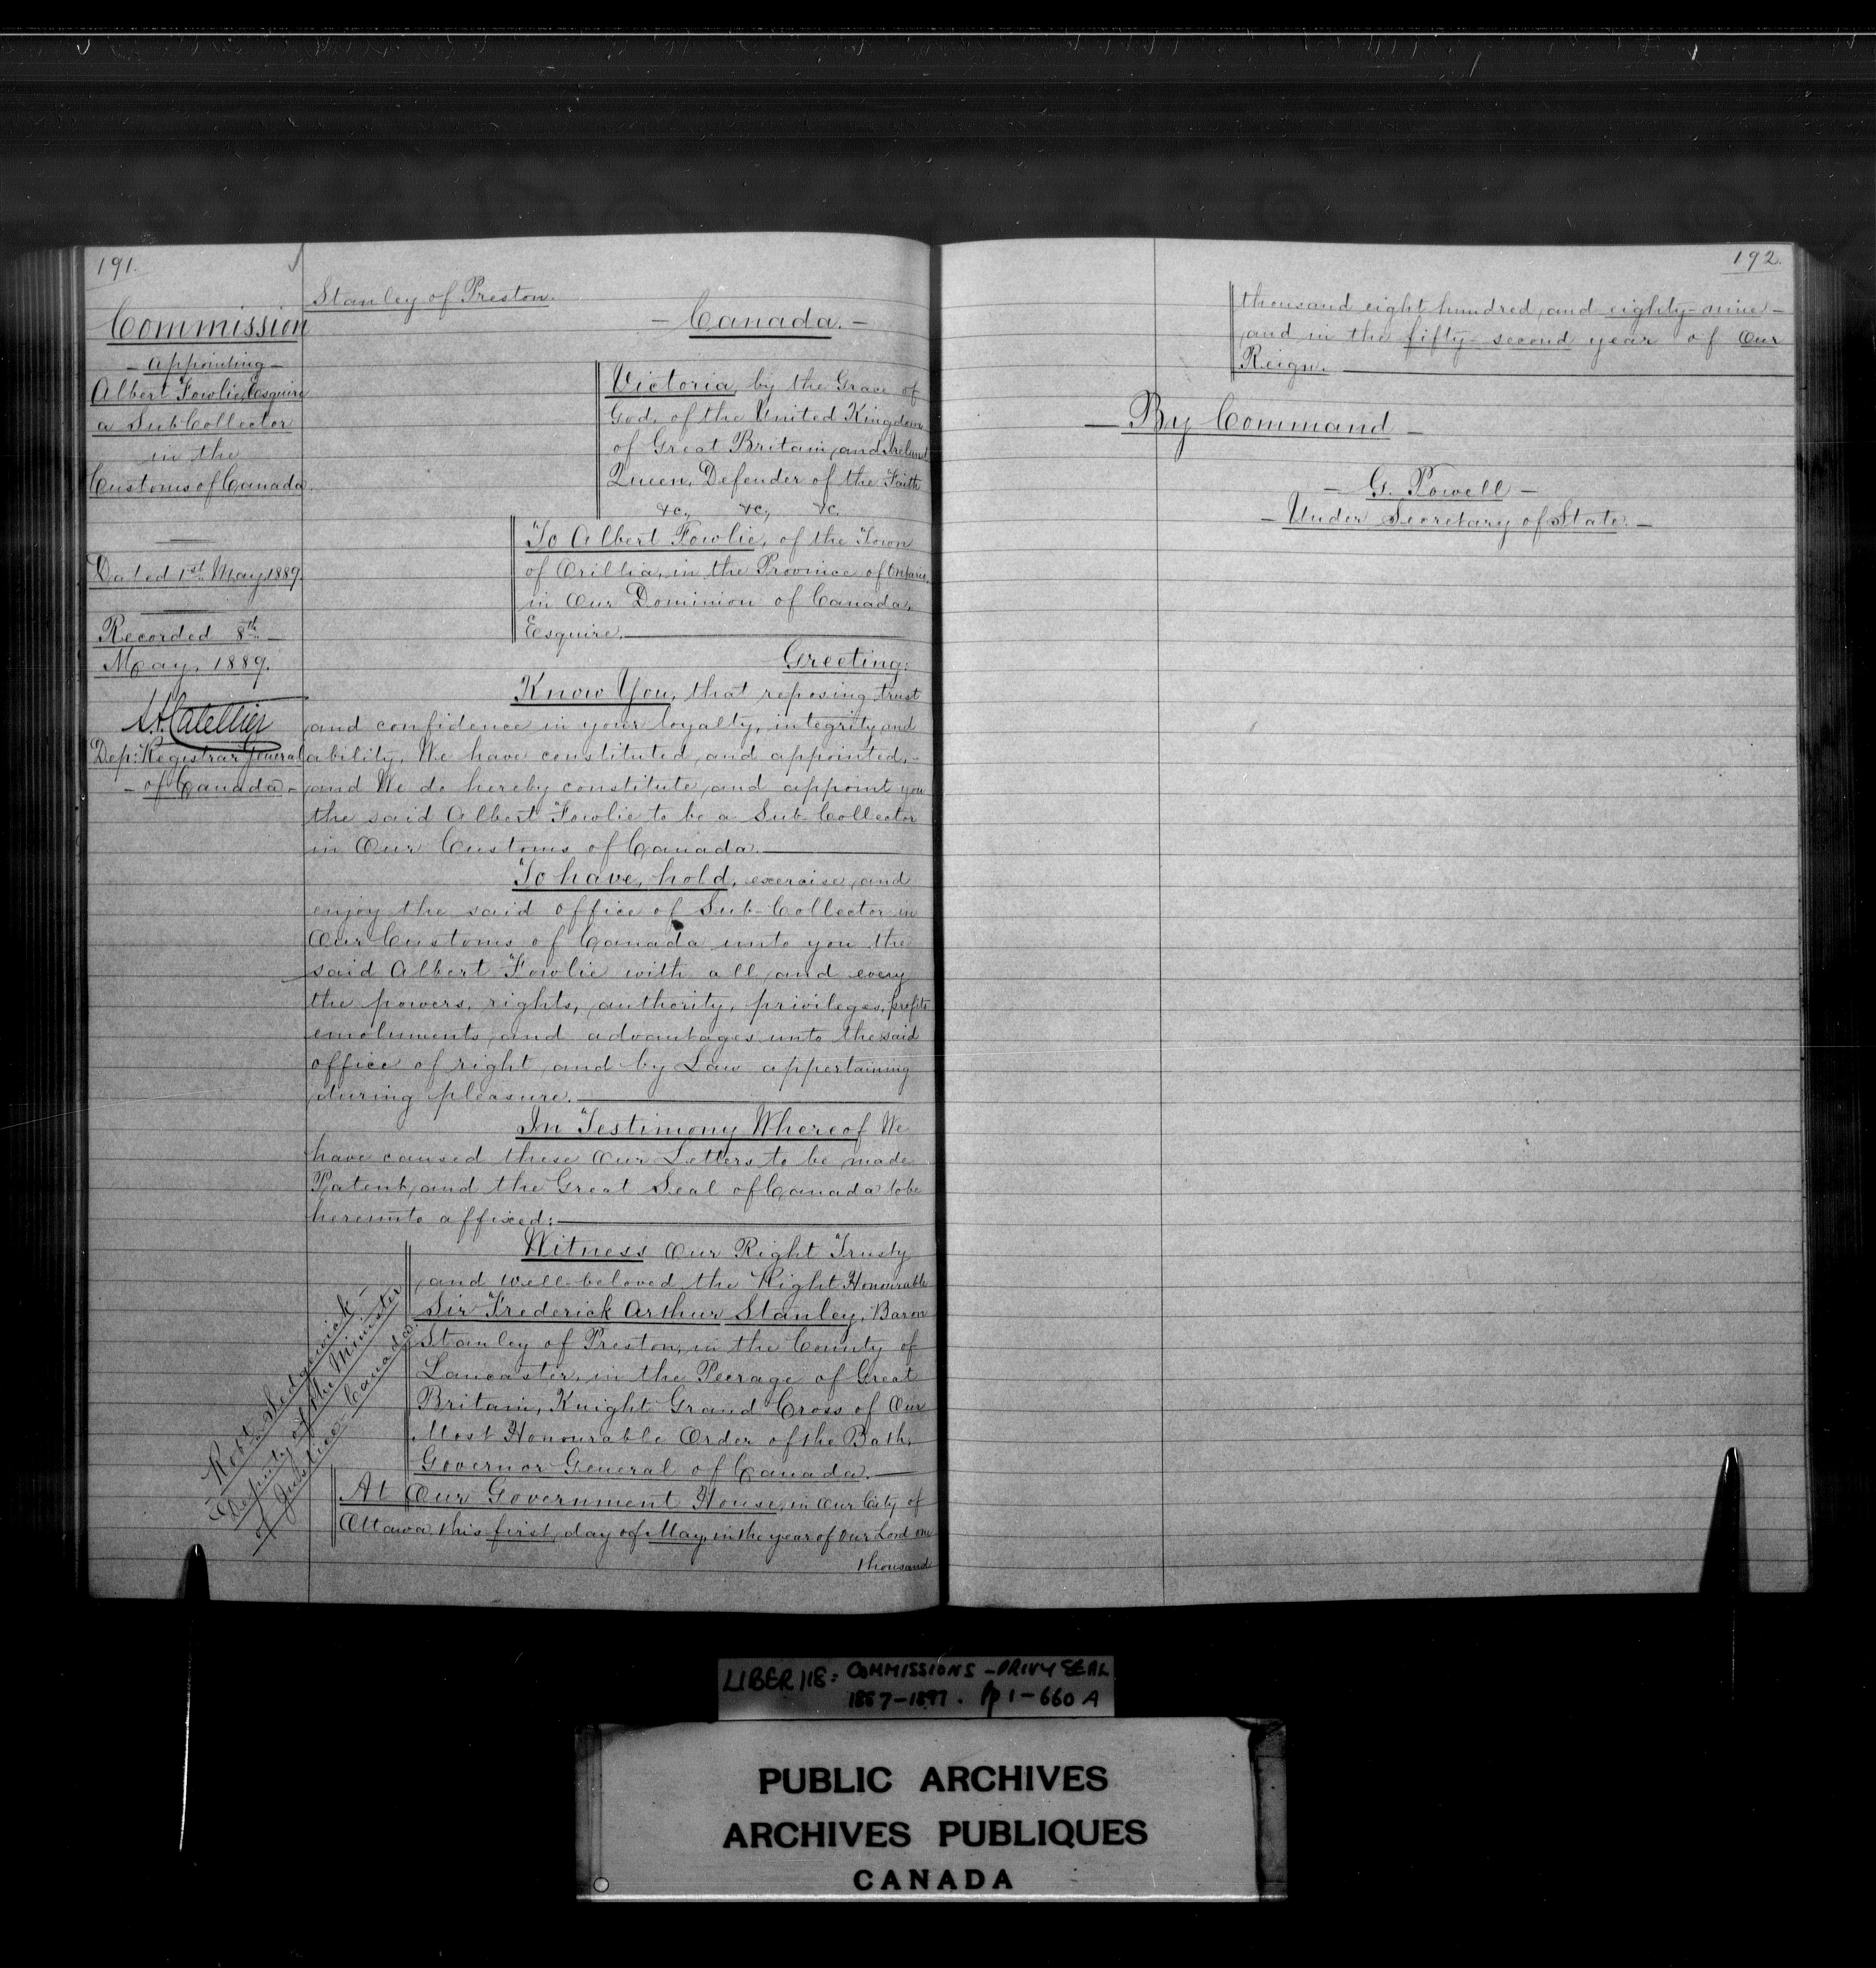 191.
Commission
- appointing -
Albert Fowlie, Esquire
a Sub Collector
in the
Customs of Canada.
Dated 1st May, 1889.
Recorded 8th -
May, 1889.
Dep: Registrar General
- of Canada -
Stanley of Preston.
- Canada. -
Victoria, by the Grace of
God, of the United Kingdom
of Great Britain, and Ireland
Queen, Defender of the Faith
&c., &c., &c.
To Albert Fowlie, of the Town
of Orillia, in the Province of Ontario,
in Our Dominion of Canada,
Esquire.
Greeting:
Know You, that reposing trust
and confidence in your loyalty, integrity and
ability, We have constituted, and appointed,
and We do hereby constitute, and appoint you
the said Albert Fowlie to be a Sub-Collector
in Our Customs of Canada.
To have, hold, exercise, and
enjoy the said office of Sub-Collector in
Our Customs of Canada unto you the
said Albert Fowlie with all and every
the powers, rights, authority, privileges, profits
emoluments and advantages unto the said
office of right and by Law appertaining
during pleasure.
In Testimony Whereof We
have caused these Our Letters to be made
Patent, and the Great Seal of Canada to be
hereunto affixed:
Witness Our Right Trusty
and well-beloved the Right Honourable
Sir Frederick Arthur Stanley, Baron
Stanley of Preston, in the County of
Lancaster, in the Peerage of Great
Britain, Knight Grand Cross of Our
Most Honourable Order of the Bath,
Governor General of Canada.
At Our Government House, in Our City of
Ottawa, this first day of May, in the year of Our Lord one
thousand
Robt. Sedgewick -
Deputy of the Minister
of Justice Canada.
192.
thousand eight hundred, and eighty-nine -
and in the fifty-second year of Our
Reign.
- By Command -
- G. Powell -
- Under Secretary of State. -
LIBER 118: COMMISSIONS - PRIVY SEAL
1887-1897. pp 1-660 A
PUBLIC ARCHIVES
ARCHIVES PUBLIQUES
CANADA